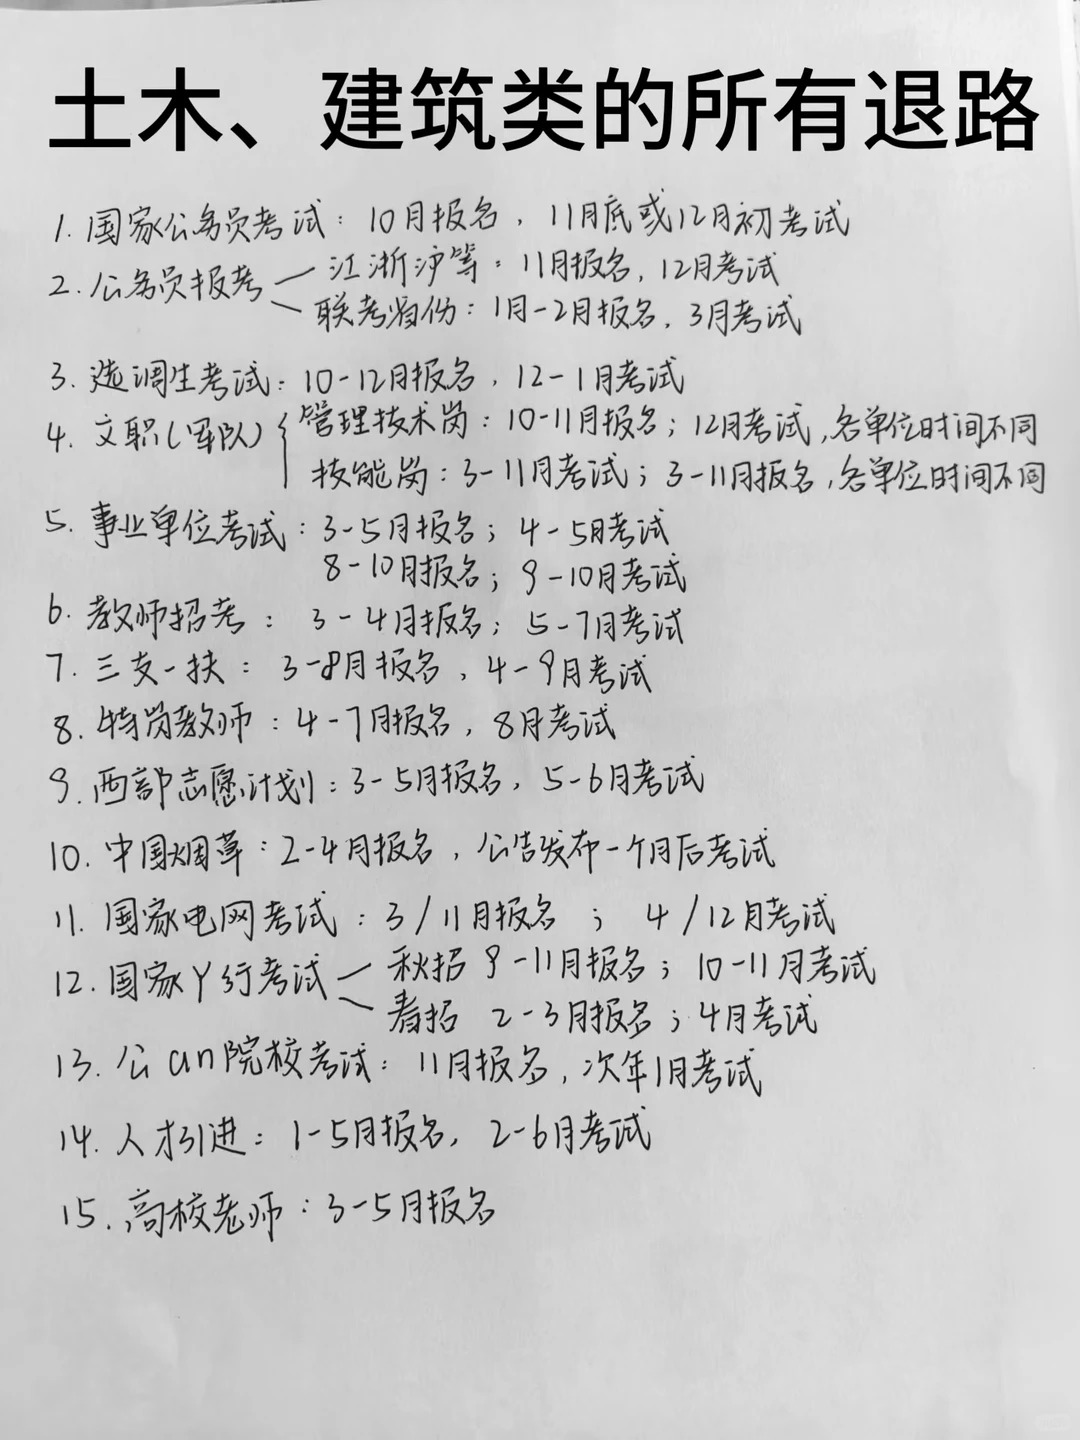 土木、建筑类的所有退路
1. 国家公务员考试：10月报名，11月底或12月初考试
2. 公务员报考 江浙沪等：11月报名，12月考试
联考省份：1月-2月报名，3月考试
3. 选调生考试：10-12月报名，12-1月考试
4. 文职(军队) 管理技术岗：10-11月报名；12月考试，各单位时间不同
技能岗：3-11月考试；3-11月报名，各单位时间不同
5. 事业单位考试：3-5月报名；4-5月考试
8-10月报名；9-10月考试
6. 教师招考：3-4月报名；5-7月考试
7. 三支一扶：3-8月报名，4-9月考试
8. 特岗教师：4-7月报名，8月考试
9. 西部志愿计划：3-5月报名，5-6月考试
10. 中国烟草：2-4月报名，公告发布一个月后考试
11. 国家电网考试：3/11月报名；4/12月考试
12. 国家丫行考试 秋招 9-11月报名；10-11月考试
春招 2-3月报名；4月考试
13. 公an院校考试：11月报名，次年1月考试
14. 人才引进：1-5月报名，2-6月考试
15. 高校老师：3-5月报名